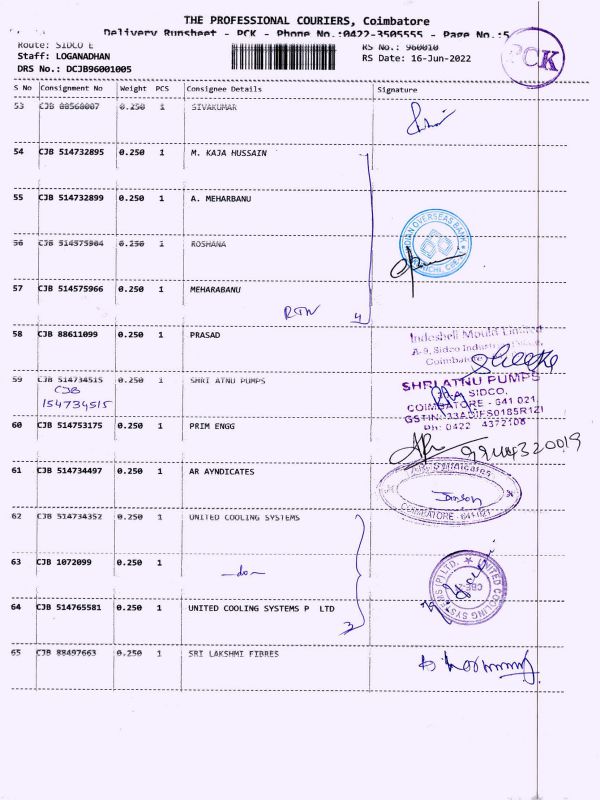 THE PROFESSIONAL COURIERS, Coimbatore
Delivery Runsheet - PCK - Phone No.:0422-3505555 - Page No.:5
Route: SIDCO E
RS No.: 960010
PCK
Staff: LOGANADHAN
RS Date: 16-Jun-2022
DRS No.: DCJB96001005
S No Consignment No Weight PCS Consignee Details Signature
53 CJB 88568007 0.250 1 SIVAKUMAR
54 CJB 514732895 0.250 1 M. KAJA HUSSAIN
55 CJB 514732899 0.250 1 A. MEHARBANU
INDIAN OVERSEAS BANK
56 CJB 514575904 0.250 1 ROSHANA
57 CJB 514575966 0.250 1 MEHARABANU
RTN 4
58 CJB 88611099 0.250 1 PRASAD
Indoshell Mould Limited
A-9, Sidco Industrial
59 CJB 514734515 0.250 1 SHRI ATNU PUMPS
CJB
154734515
SHRI ATNU PUMPS
SIDCO,
COIMBATORE - 641 021.
Ph: 0422 4372108
60 CJB 514753175 0.250 1 PRIM ENGG
61 CJB 514734497 0.250 1 AR AYNDICATES
COIMBATORE - 641 021
62 CJB 514734352 0.250 1 UNITED COOLING SYSTEMS
63 CJB 1072099 0.250 1
-do-
64 CJB 514765581 0.250 1 UNITED COOLING SYSTEMS P LTD
3
UNITED COOLING SYSTEMS (P) LTD.
65 CJB 88497663 0.250 1 SRI LAKSHMI FIBRES